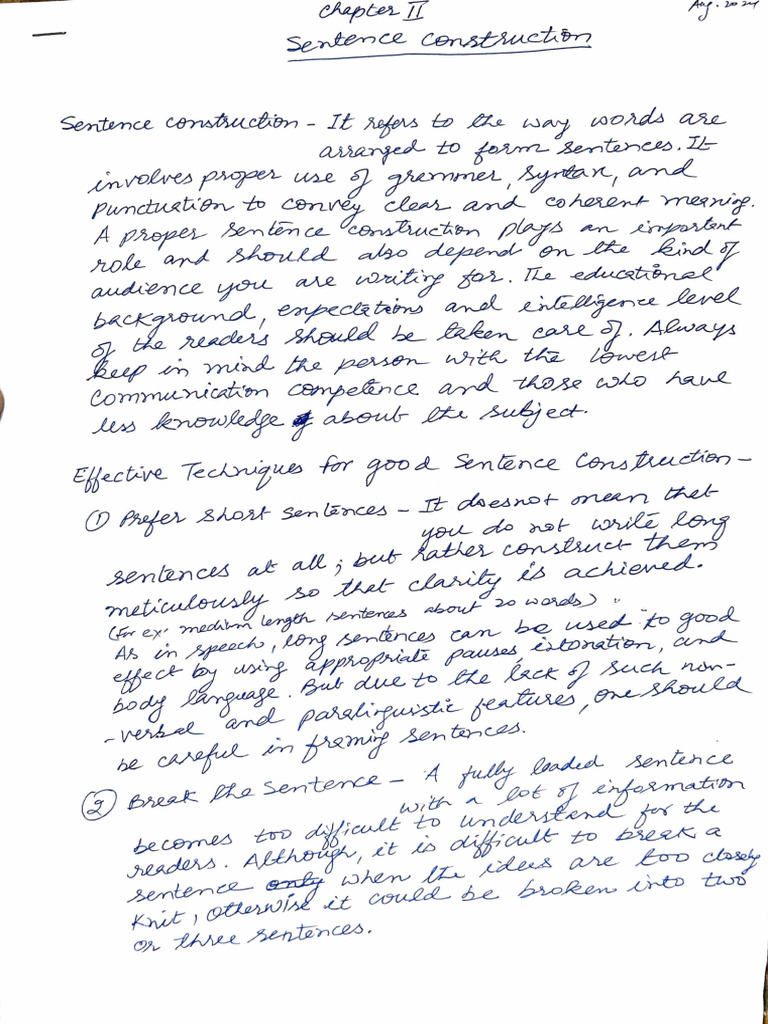 Chapter II
Aug. 2024
Sentence Construction
Sentence construction - It refers to the way words are
arranged to form sentences. It
involves proper use of grammer, syntax, and
punctuation to convey clear and coherent meaning.
A proper sentence construction plays an important
role and should also depend on the kind of
audience you are writing for. The educational
background, expectations and intelligence level
of the readers should be taken care of. Always
keep in mind the person with the lowest
communication competence and those who have
less knowledge about the subject.
Effective Techniques for good Sentence Construction -
① Prefer short sentences - It doesnot mean that
you do not write long
sentences at all; but rather construct them
meticulously so that clarity is achieved.
(For ex. medium length sentences about 20 words)
As in speech, long sentences can be used to good
effect by using appropriate pauses, intonation, and
body language. But due to the lack of such non-
-verbal and paralinguistic features, one should
be careful in framing sentences.
② Break the Sentence - A fully loaded sentence
with a lot of information
becomes too difficult to understand for the
readers. Although, it is difficult to break a
sentence only when the ideas are too closely
knit, otherwise it could be broken into two
or three sentences.